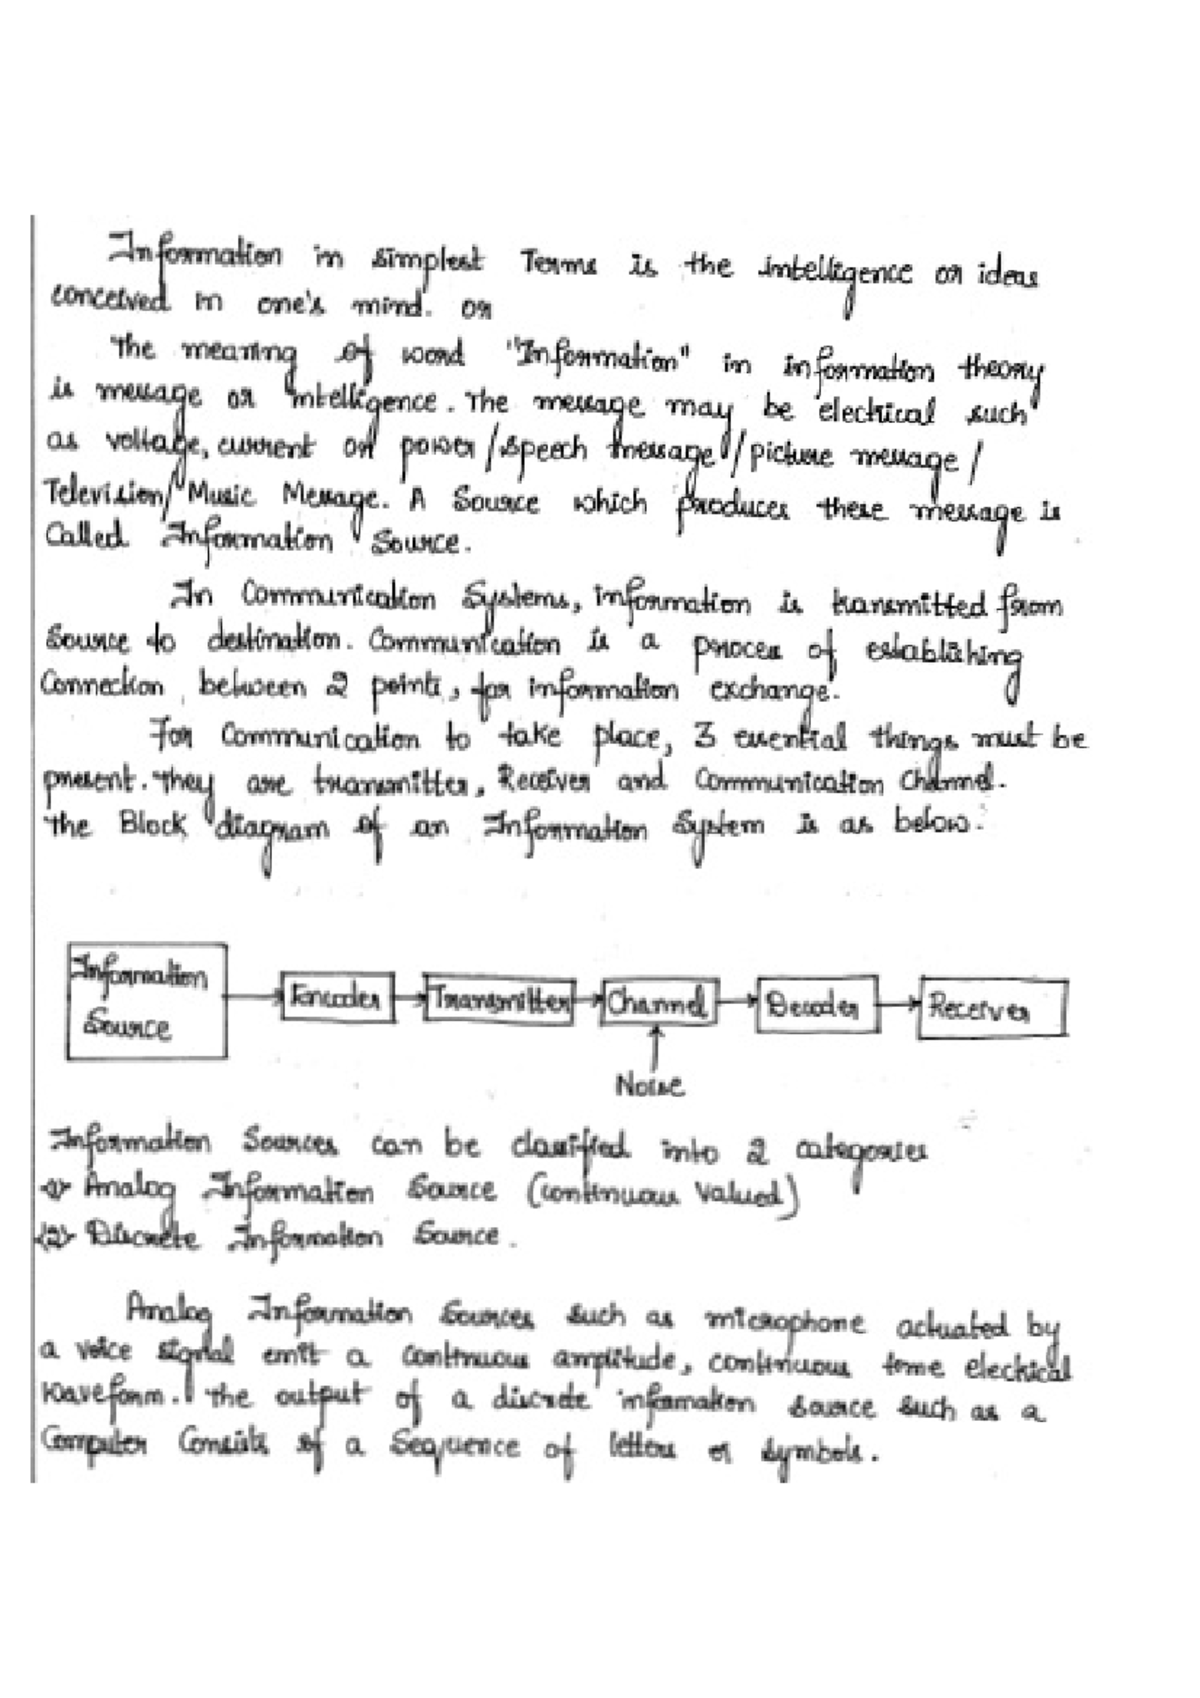 Information in simplest Terms is the intelligence or ideas
conceived in one's mind. or
The meaning of word "Information" in information theory
is message or intelligence. The message may be electrical such
as voltage, current or power/speech message/picture message/
Television/Music Message. A Source which produces these message is
Called Information Source.
In Communication Systems, information is transmitted from
Source to destination. Communication is a process of establishing
Connection between 2 points, for information exchange.
For Communication to take place, 3 essential things must be
present. They are transmitter, Receiver and Communication Channel.
The Block diagram of an Information System is as below.
Information
Source
Encoder
Transmitter
Channel
Decoder
Receiver
Noise
Information Sources can be classified into 2 categories
<1> Analog Information Source (continuous valued)
<2> Discrete Information Source.
Analog Information Sources such as microphone actuated by
a voice signal emit a continuous amplitude, continuous time electrical
waveform. The output of a discrete information source such as a
Computer Consists of a Sequence of letters or symbols.